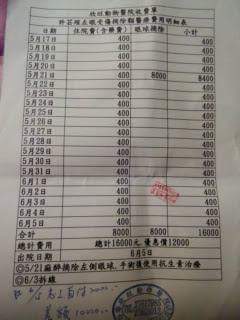 動物醫院收費單
左眼受傷摘除額醫療費用明細表
日期 住院費(含醫費) 眼球摘除 小計
5月17日 400 400
5月18日 400 400
5月19日 400 400
5月20日 400 400
5月21日 400 8000 8400
5月22日 400 400
5月23日 400 400
5月24日 400 400
5月25日 400 400
5月26日 400 400
5月27日 400 400
5月28日 400 400
5月29日 400 400
5月30日 400 400
5月31日 400 400
6月1日 400 400
6月2日 400 400
6月3日 400 400
6月4日 400 400
6月5日 400 400
合計 8000 8000 16000
總計費用 總計16000元 優惠價12000
出院日期 6月5日
◎5/21麻醉摘除左側眼球,手術後使用抗生素治療
◎6/3拆線